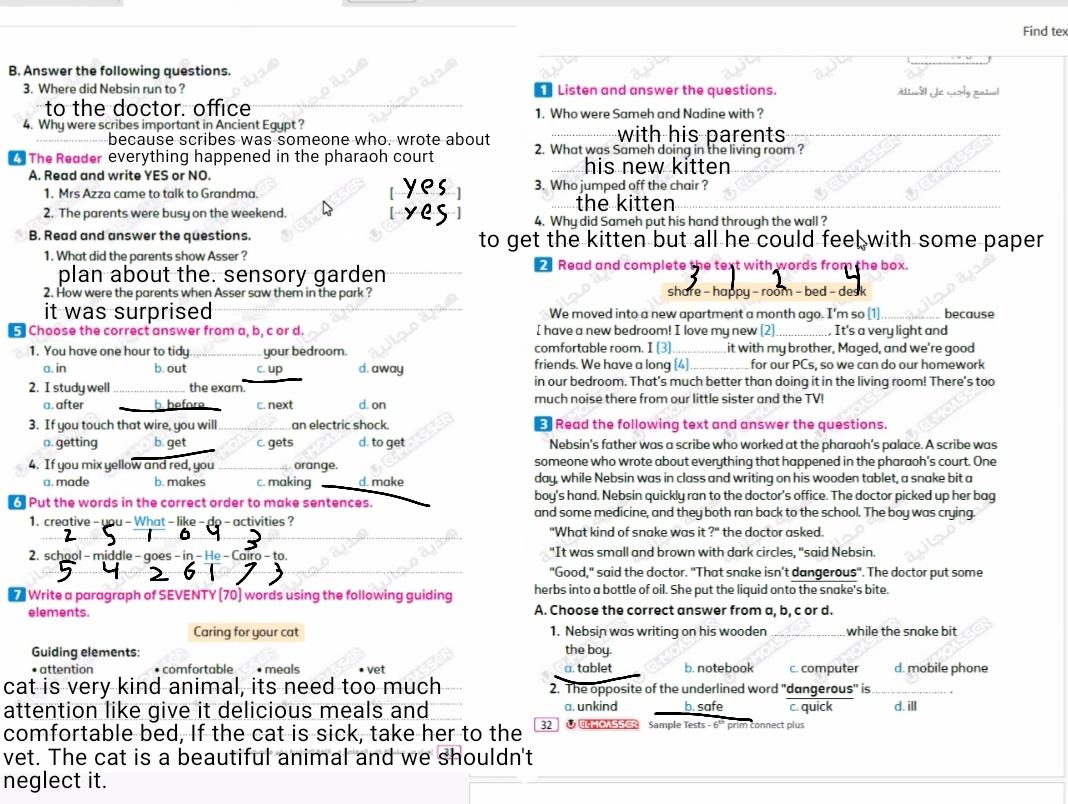 Find tex
B. Answer the following questions.
3. Where did Nebsin run to?
to the doctor. office
4. Why were scribes important in Ancient Egypt?
because scribes was someone who. wrote about
everything happened in the pharaoh court
4 The Reader
A. Read and write YES or NO.
1. Mrs Azza came to talk to Grandma. [ yes ]
2. The parents were busy on the weekend. [ yes ]
B. Read and answer the questions.
1. What did the parents show Asser?
plan about the. sensory garden
2. How were the parents when Asser saw them in the park?
it was surprised
5 Choose the correct answer from a, b, c or d.
1. You have one hour to tidy..................your bedroom.
a. in b. out c. up d. away
2. I study well .................. the exam.
a. after b. before c. next d. on
3. If you touch that wire, you will..................an electric shock.
a. getting b. get c. gets d. to get
4. If you mix yellow and red, you .................. orange.
a. made b. makes c. making d. make
6 Put the words in the correct order to make sentences.
1. creative – you – What – like – do – activities?
2 5 1 6 4 3
2. school – middle – goes – in – He – Cairo – to.
5 4 2 6 1 7 3
7 Write a paragraph of SEVENTY (70) words using the following guiding
elements.
Caring for your cat
Guiding elements:
• attention • comfortable • meals • vet
cat is very kind animal, its need too much
attention like give it delicious meals and
comfortable bed, If the cat is sick, take her to the
vet. The cat is a beautiful animal and we shouldn't
neglect it.
1 Listen and answer the questions.
استمع وأجب على الأسئلة.
1. Who were Sameh and Nadine with?
with his parents
2. What was Sameh doing in the living room?
his new kitten
3. Who jumped off the chair?
the kitten
4. Why did Sameh put his hand through the wall?
to get the kitten but all he could feel with some paper
2 Read and complete the text with words from the box.
3 1 2 4
share – happy – room – bed – desk
We moved into a new apartment a month ago. I'm so [1].................. because
I have a new bedroom! I love my new [2]................... It's a very light and
comfortable room. I [3]..................it with my brother, Maged, and we're good
friends. We have a long [4]..................for our PCs, so we can do our homework
in our bedroom. That's much better than doing it in the living room! There's too
much noise there from our little sister and the TV!
3 Read the following text and answer the questions.
Nebsin's father was a scribe who worked at the pharaoh's palace. A scribe was
someone who wrote about everything that happened in the pharaoh's court. One
day, while Nebsin was in class and writing on his wooden tablet, a snake bit a
boy's hand. Nebsin quickly ran to the doctor's office. The doctor picked up her bag
and some medicine, and they both ran back to the school. The boy was crying.
"What kind of snake was it?" the doctor asked.
"It was small and brown with dark circles, "said Nebsin.
"Good," said the doctor. "That snake isn't dangerous". The doctor put some
herbs into a bottle of oil. She put the liquid onto the snake's bite.
A. Choose the correct answer from a, b, c or d.
1. Nebsin was writing on his wooden ..................while the snake bit
the boy.
a. tablet b. notebook c. computer d. mobile phone
2. The opposite of the underlined word "dangerous" is.................. .
a. unkind b. safe c. quick d. ill
32 EL-MOASSER Sample Tests - 6th prim connect plus